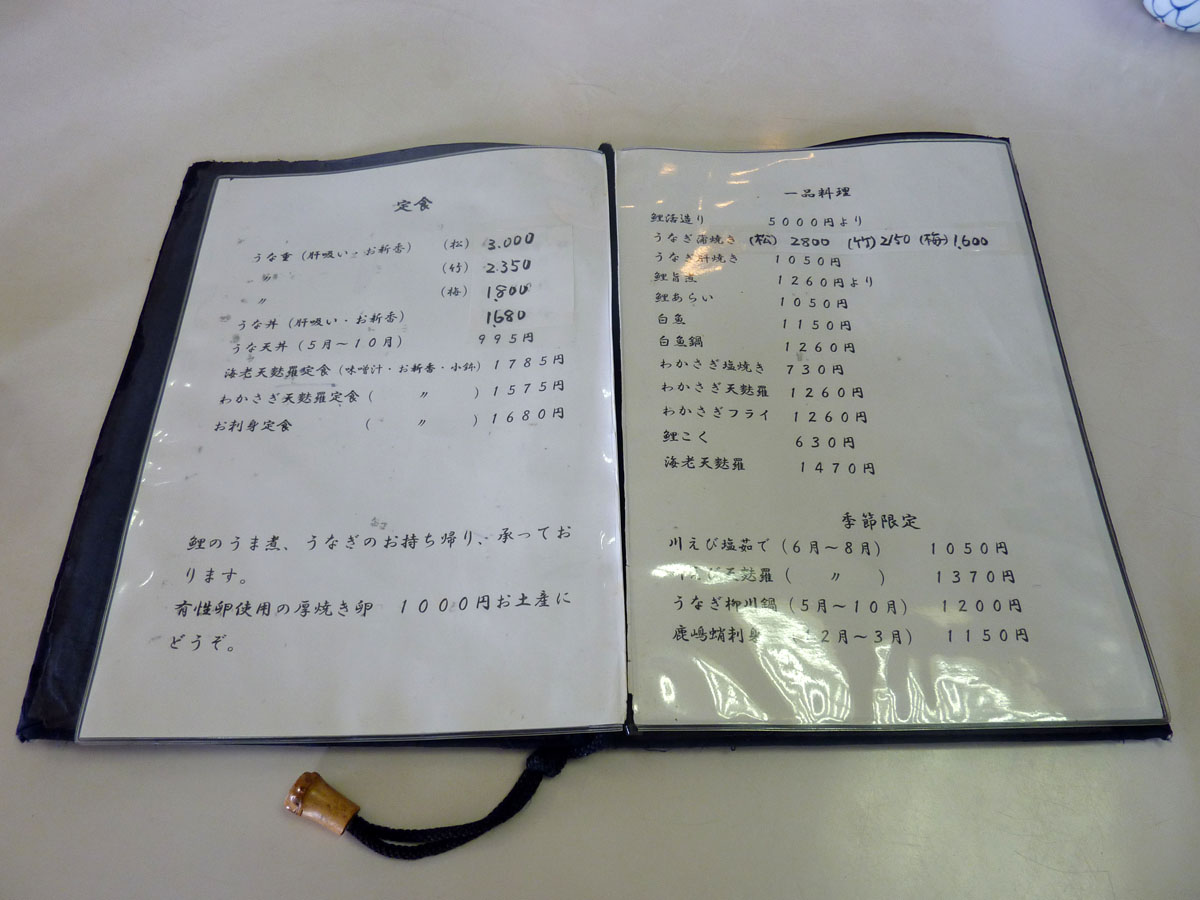 定食
うな重（肝吸い・お新香） （松） 3.000
〃 （竹） 2.350
〃 （梅） 1.800
うな丼（肝吸い・お新香） 1.680
うな天丼（5月～10月） 995円
海老天麩羅定食（味噌汁・お新香・小鉢） 1785円
わかさぎ天麩羅定食（ 〃 ） 1575円
お刺身定食 （ 〃 ） 1680円
鯉のうま煮、うなぎのお持ち帰り、承ってお
ります。
有性卵使用の厚焼き卵 1000円お土産に
どうぞ。
一品料理
鯉活造り 5000円より
うなぎ蒲焼き （松） 2800 （竹）2150 （梅）1,600
うなぎ肝焼き 1050円
鯉旨煮 1260円より
鯉あらい 1050円
白魚 1150円
白魚鍋 1260円
わかさぎ塩焼き 730円
わかさぎ天麩羅 1260円
わかさぎフライ 1260円
鯉こく 630円
海老天麩羅 1470円
季節限定
川えび塩茹で（6月～8月） 1050円
えび天麩羅（ 〃 ） 1370円
うなぎ柳川鍋（5月～10月） 1200円
鹿嶋蛸刺身 2月～3月） 1150円